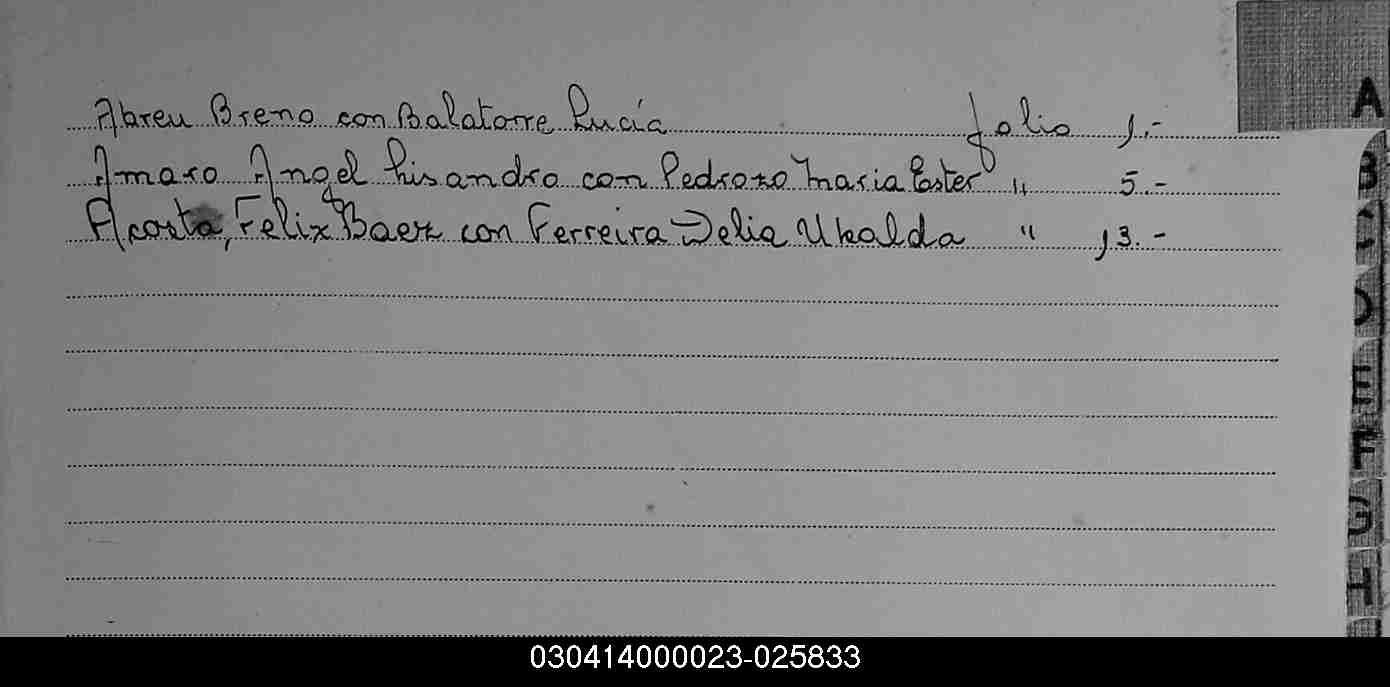 Abreu Breno con Balatorre Lucía folio 1.-
Amaro Angel Lisandro con Pedrozo Maria Ester " 5.-
Acosta, Felix Baez con Ferreira Delia Ubalda " 13.-
A
B
C
D
E
F
G
H
030414000023-025833